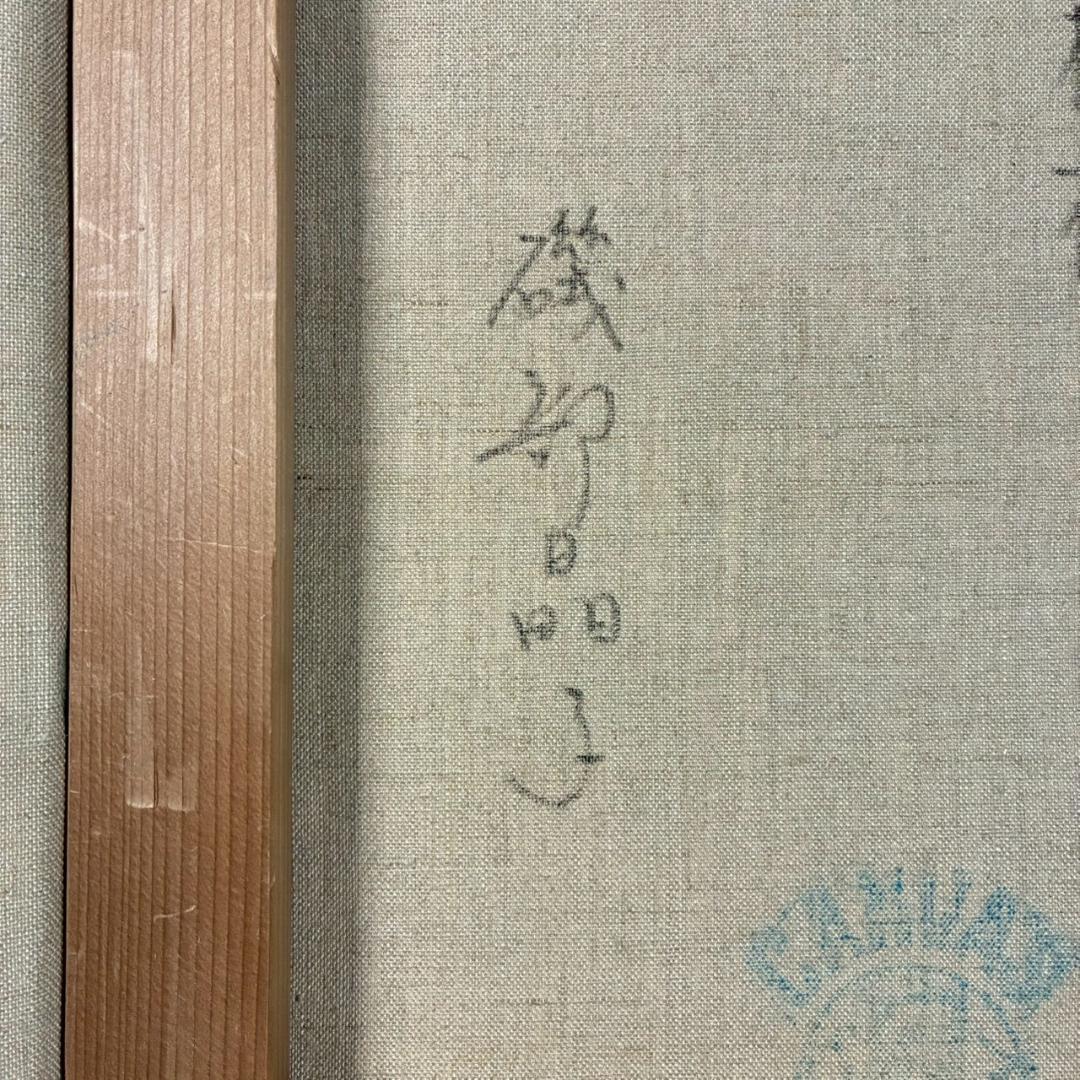 磯部晶子
CANVAS